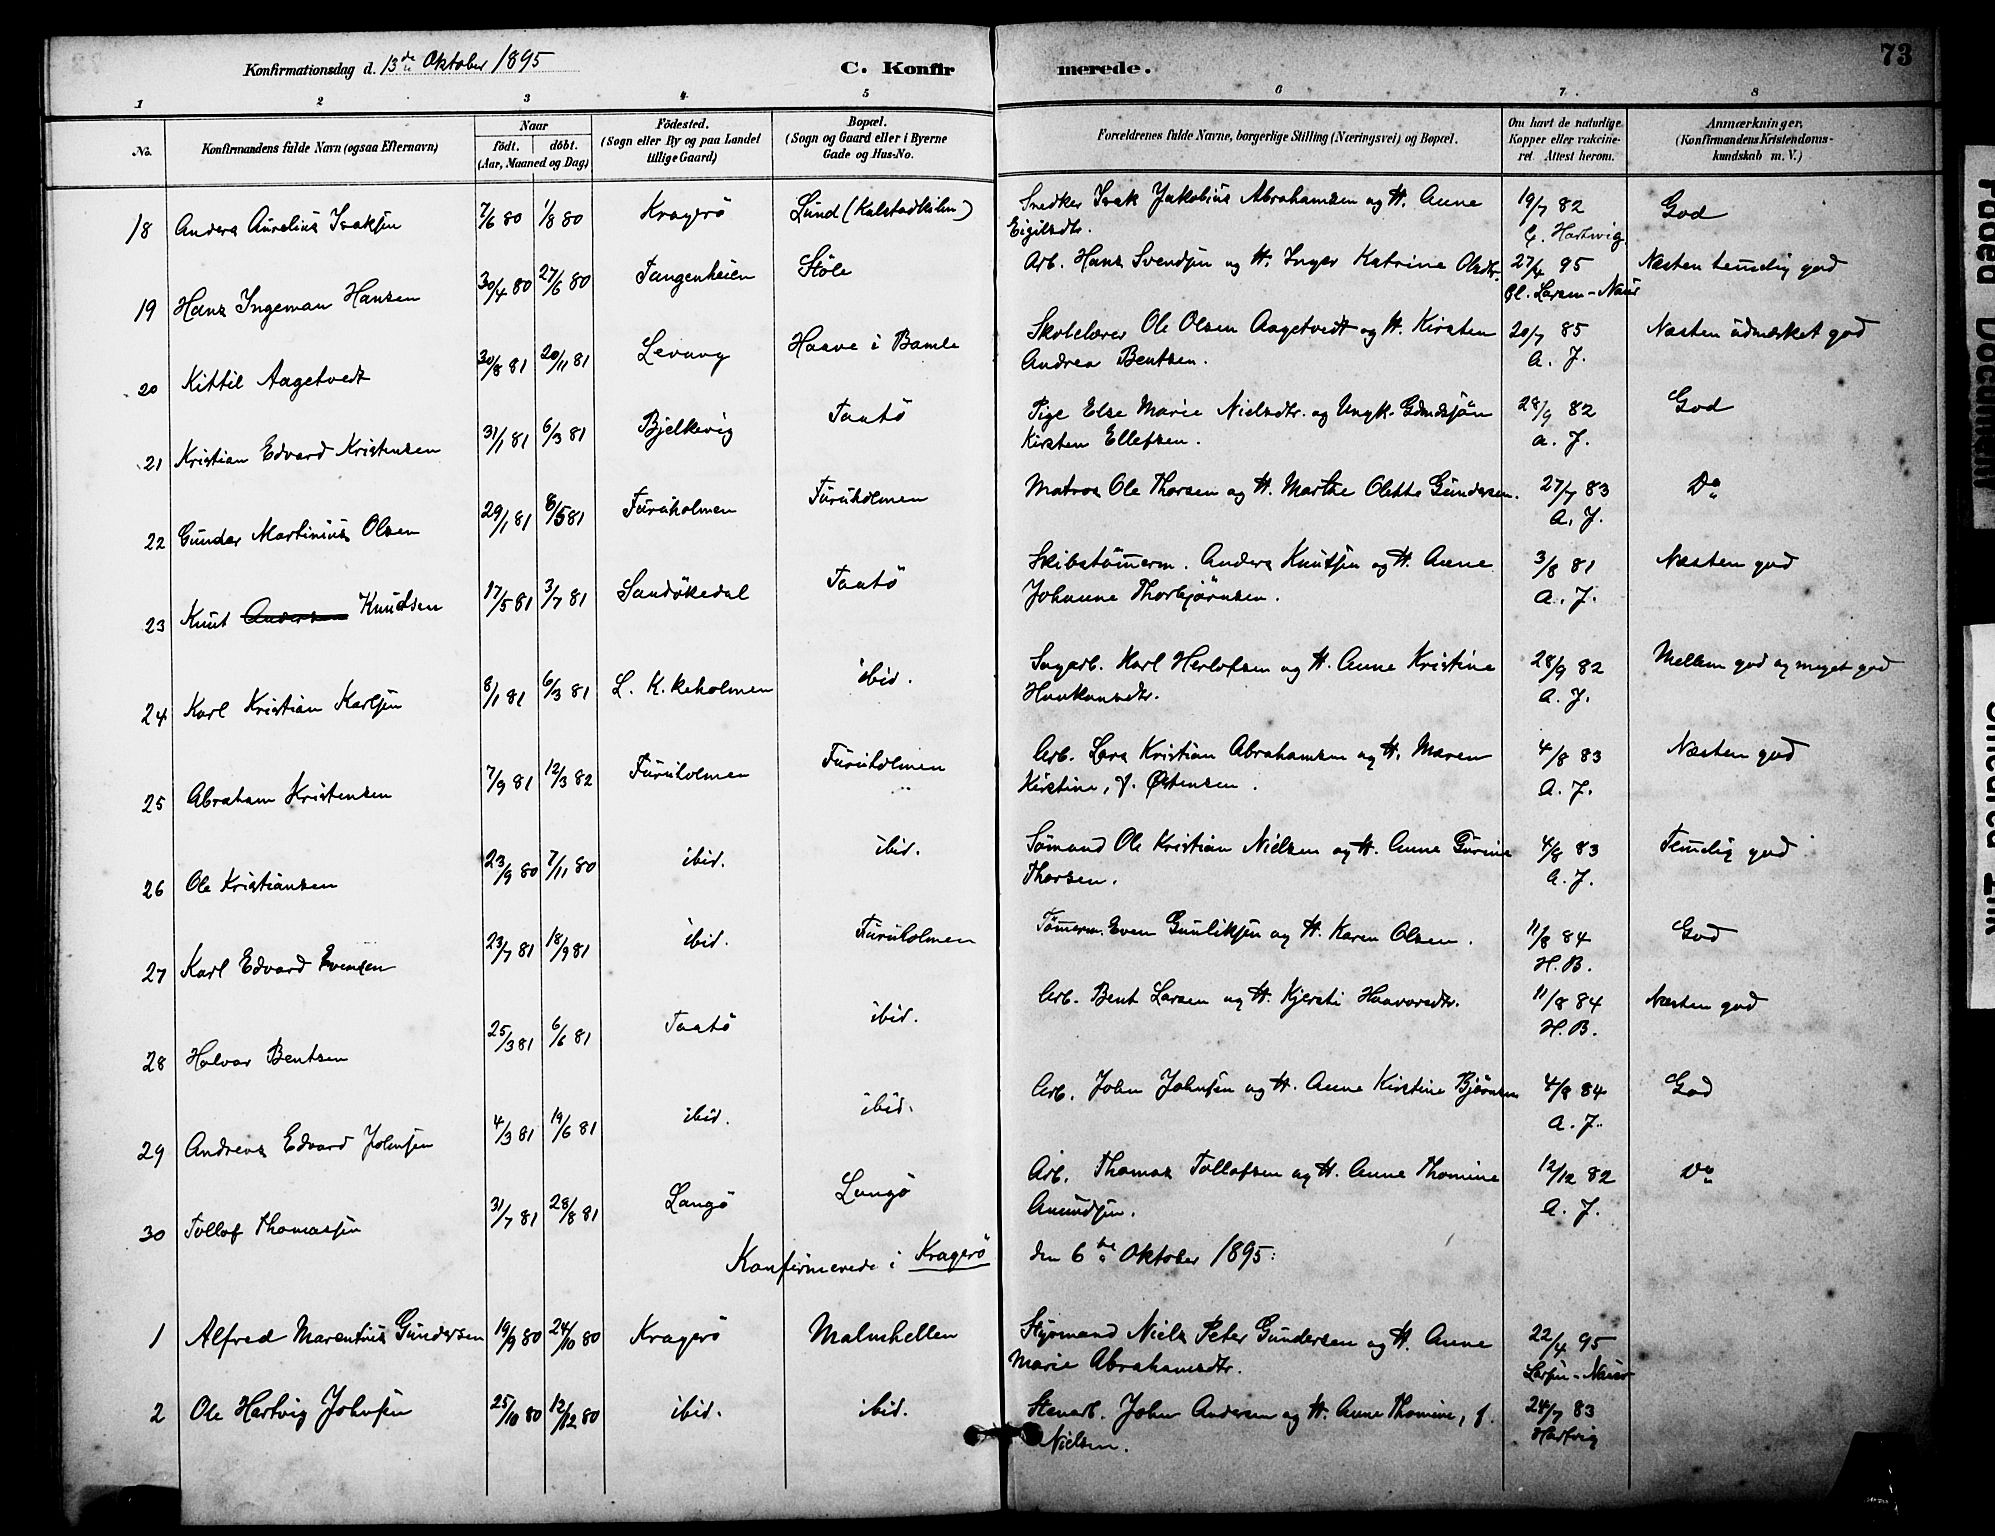 Konfirmationsdag d. 13de Oktober 1895
C. Konfir merede.
73
1 2 3 4 5 6 7 8
No. Konfirmandens fulde Navn (ogsaa Efternavn) Naar födt. döbt. (Aar, Maaned og Dag) Födested. (Sogn eller By og paa Landet tillige Gaard) Bopæl. (Sogn og Gaard eller i Byerne Gade og Hus-No. Forældrenes fulde Navne, borgerlige Stilling (Næringsvei) og Bopæl. Om havt de naturlige Kopper eller vakcineret. Attest herom. Anmærkninger, (Konfirmandens Kristendomskundskab m. V.)
18 Anders Aurelius Isaksen 7/6 80 1/8 80 Kragerö Lund (Kalstadkilen) Snedker Isak Jakobius Abrahamsen og H. Anne 19/7 82 God
Eigilsdtr. G. Hartwig
19 Hans Ingeman Hansen 30/4 80 27/6 80 Tangenheien Stöle Arb. Hans Svendsen og H. Inger Katrine Olsdtr. 27/4 95 Næsten temelig god
Larsen-Naur
20 Kittil Aagetvedt 30/8 81 20/11 81 Levang Haave i Bamle Skolelærer Ole Olsen Aagetvedt og H. Kirsten 20/7 85 Næsten udmærket god
Andrea Bentsen. A. J.
21 Kristian Edvard Kristensen 31/1 81 6/3 81 Bjelkevig Taatö Pige Else Marie Nielsdtr. og Ungk. 28/9 82 God
Kirsten Ellefsen. A. J.
22 Gunder Martinius Olsen 29/1 81 6/5 81 Furuholmen Furuholmen Matros Ole Thorsen og H. Marthe Olette Gundersen. 27/7 83 Do
A. J.
23 Knut Andersen Knudsen 17/5 81 3/7 81 Sandökedal Taatö Skibstömerm. Anders Knutsen og H. Anne 3/8 81 Næsten god
Johanne Thorbjörnsen. A. J.
24 Karl Kristian Karlsen 8/1 81 6/3 81 L. Kirkeholmen ibid. Sagarb. Karl Herlofsen og H. Anne Kristine 28/9 82 Mellem god og meget god
Haakonsdtr. A. J.
25 Abraham Kristensen 7/9 81 12/3 82 Furuholmen Furuholmen Arb. Lars Kristian Abrahamsen og H. Maren 4/8 83 Næsten god
Kirstine, f. Østensen. A. J.
26 Ole Kristiansen 23/9 80 7/11 80 ibid. ibid. Sömand Ole Kristian Nielsen og H. Anne Gurine 4/8 83 Temelig god
Thorsen. A. J.
27 Karl Edvard Evensen 23/7 81 18/9 81 ibid. Furuholmen Tömerm. Even Gunliksen og H. Karen Olsen. 11/8 84 God
H. B.
28 Halvor Bentsen 25/3 81 6/6 81 Taatö ibid. Arb. Bent Larsen og H. Kjersti Haavorsdtr. 11/8 84 Næsten god
H. B.
29 Andreas Edvard Johnsen 4/3 81 19/6 81 ibid. ibid. Arb. John Johnsen og H. Anne Kirstine Björnsen 4/8 84 God
A. J.
30 Tollof Thomassen 31/7 81 28/8 81 Langö Langö Arb. Thomas Tollofsen og H. Anne Thomine 12/12 82 Do
Amundsen. A. J.
Konfirmerede i Kragerö den 6te Oktober 1895:
1 Alfred Marentius Gundersen 19/9 80 24/10 80 Kragerö Malmhellen Styrmand Niels Peter Gundersen og H. Anne 22/4 95
Marie Abrahamsdtr. Larsen-Naur
2 Ole Hartvig Johnsen 25/10 80 12/12 80 ibid. ibid. Stenarb. John Andersen og H. Anne Thomine, f. 24/7 83
Nielsen. Hartvig
Faded Document